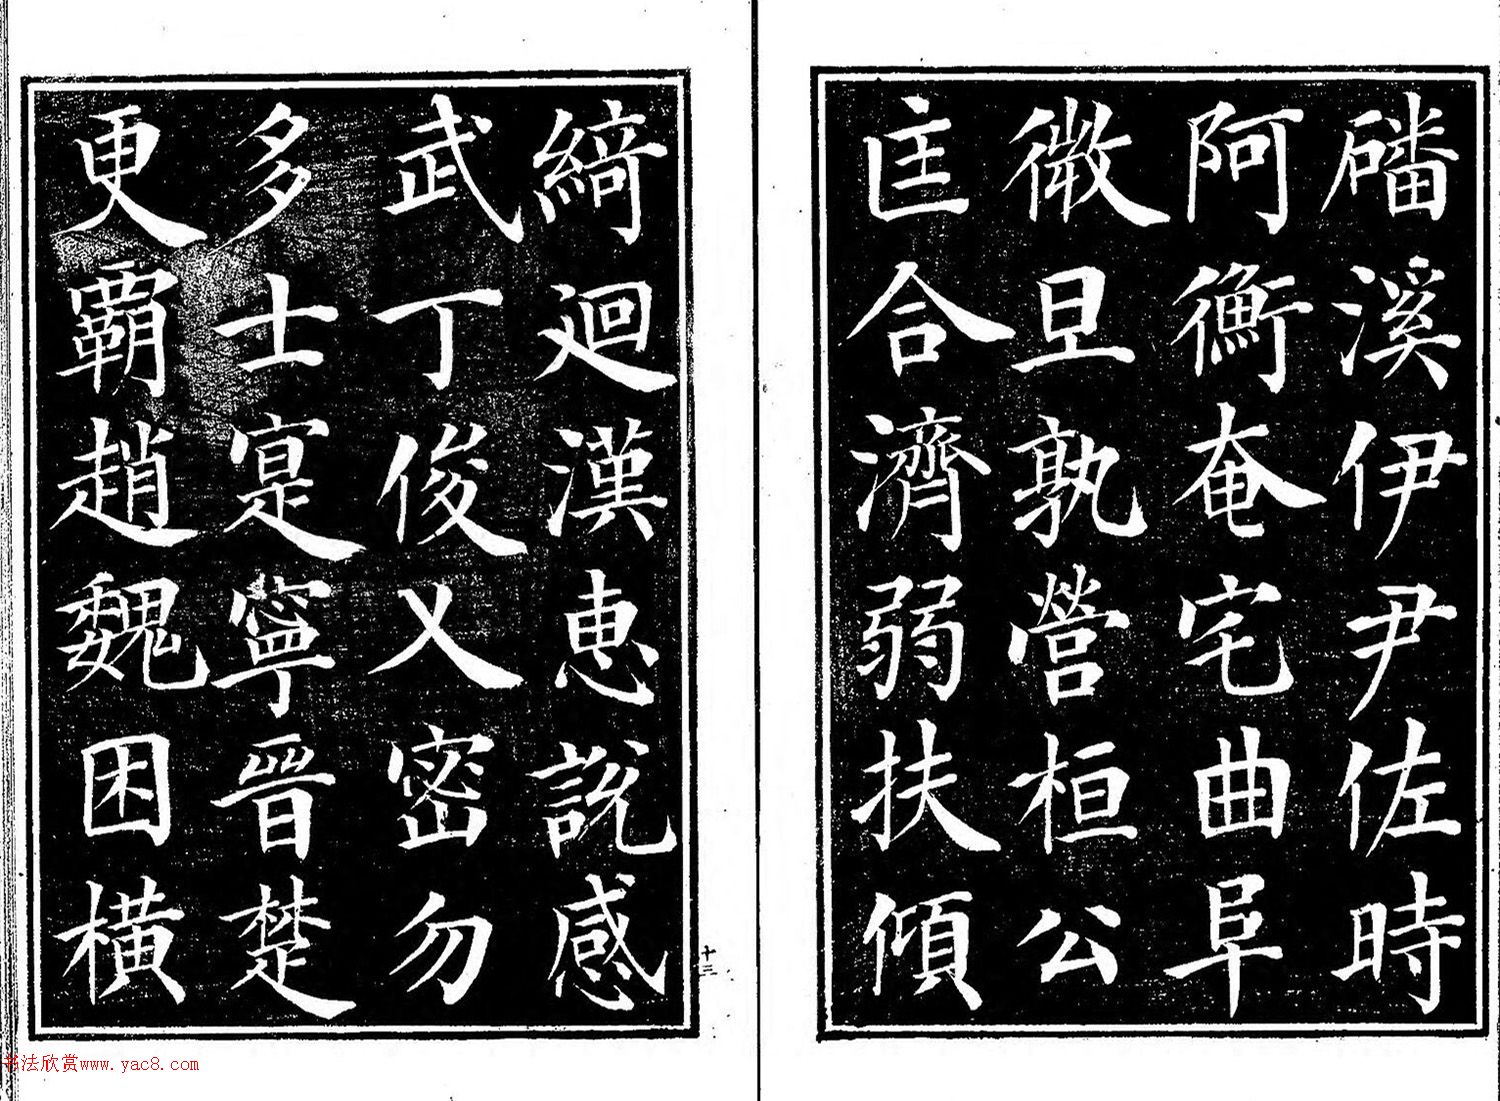 磻溪伊尹佐時
阿衡奄宅曲阜
微旦孰營桓公
匡合濟弱扶傾
綺迴漢惠說感
武丁俊乂密勿
多士寔寧晉楚
更霸趙魏困橫
十三
书法欣赏www.yac8.com